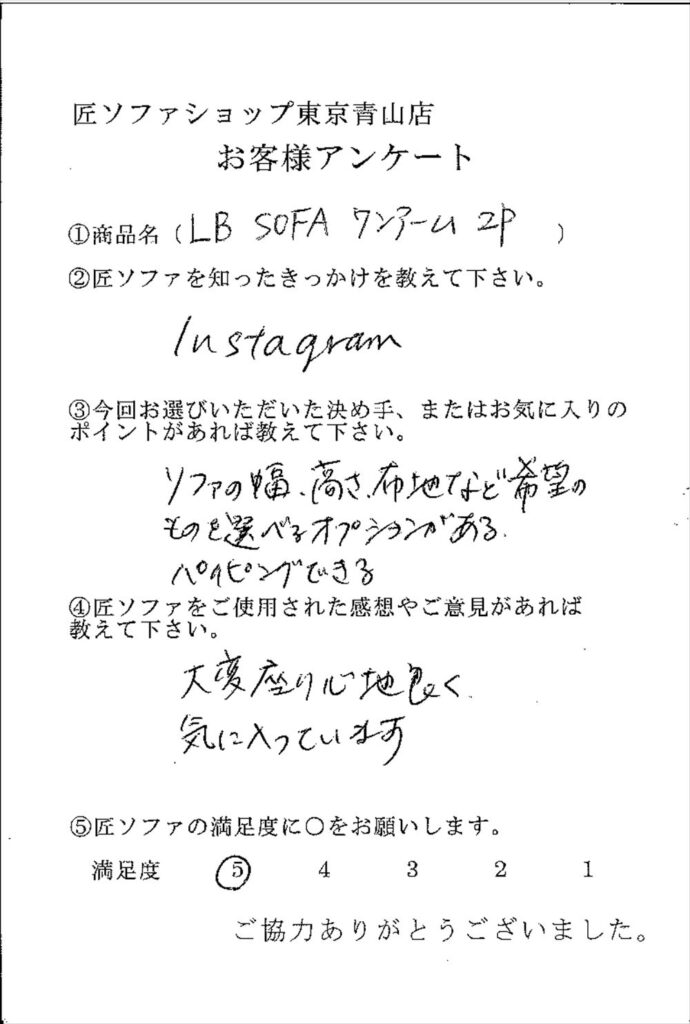 匠ソファショップ東京青山店
お客様アンケート
①商品名（LB SOFA ワンアーム 2P ）
②匠ソファを知ったきっかけを教えて下さい。
Instagram
③今回お選びいただいた決め手、またはお気に入りの
ポイントがあれば教えて下さい。
ソファの幅、高さ、布地など希望の
ものを選べるオプションがある.
パイピングできる
④匠ソファをご使用された感想やご意見があれば
教えて下さい。
大変座り心地良く
気に入っています
⑤匠ソファの満足度に〇をお願いします。
満足度 5 4 3 2 1
ご協力ありがとうございました。